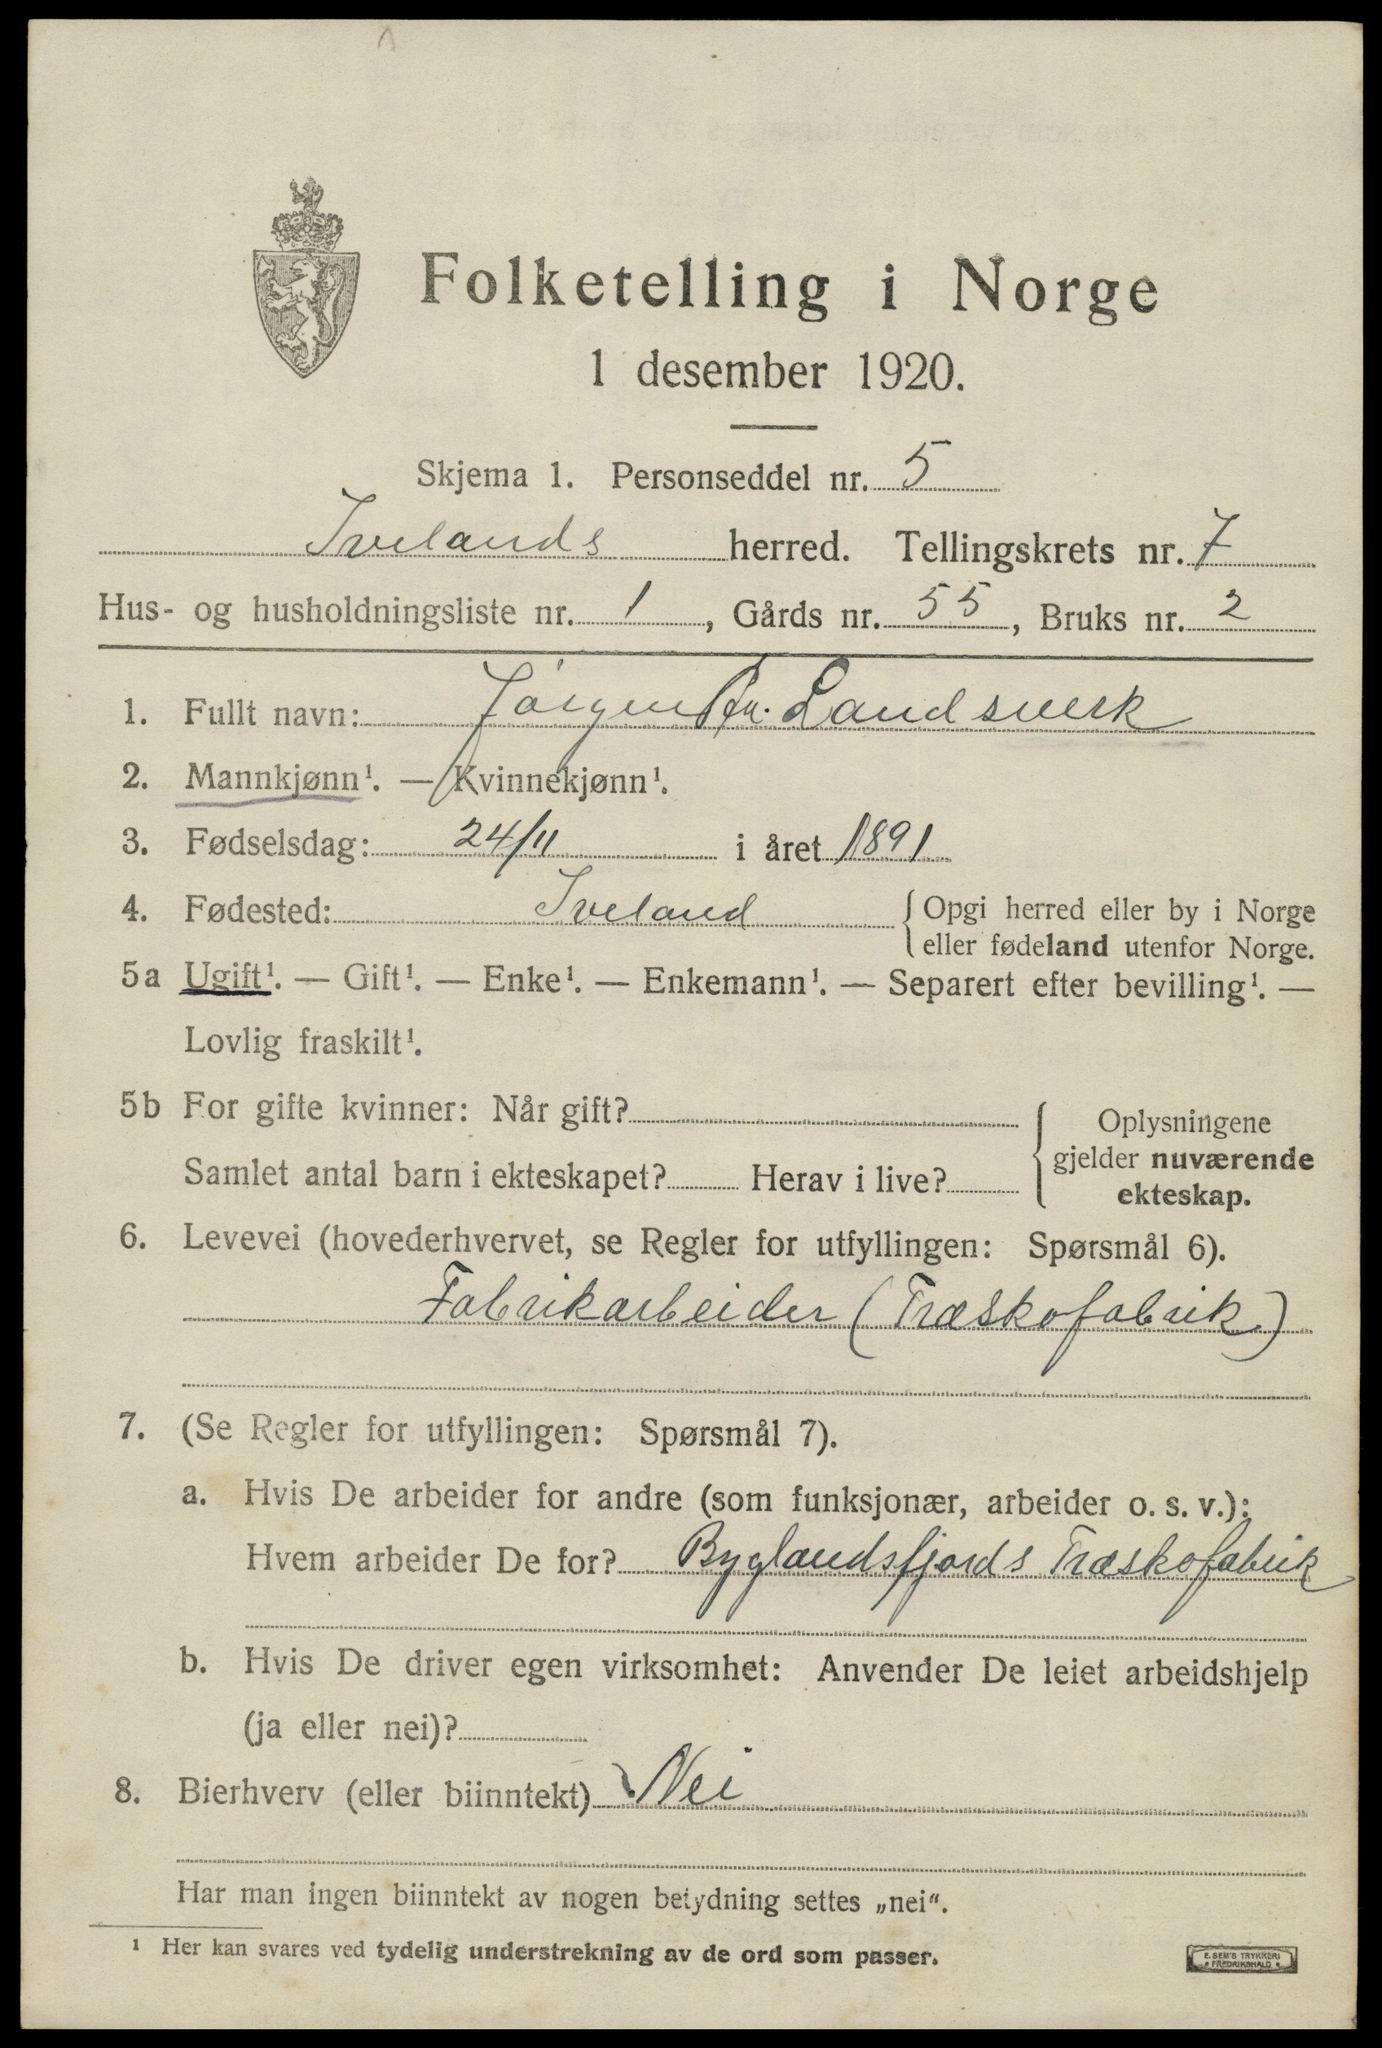 Folketelling i Norge
1 desember 1920.
Skjema 1. Personseddel nr. 5
Ivelands herred. Tellingskrets nr. 7
Hus- og husholdningsliste nr. 1, Gårds nr. 55, Bruks nr. 2
1. Fullt navn: Jörgen Landsverk
2. Mannkjønn¹. — Kvinnekjønn¹.
3. Fødselsdag: 24/11 i året 1891
4. Fødested: Iveland { Opgi herred eller by i Norge
eller fødeland utenfor Norge.
5a Ugift¹. — Gift¹. — Enke¹. — Enkemann¹. — Separert efter bevilling¹. —
Lovlig fraskilt¹.
5b For gifte kvinner: Når gift?
Samlet antal barn i ekteskapet? Herav i live?
Oplysningene
gjelder nuværende
ekteskap.
6. Levevei (hovederhvervet, se Regler for utfyllingen: Spørsmål 6).
Fabrikarbeider (Træskofabrik)
7. (Se Regler for utfyllingen: Spørsmål 7).
a. Hvis De arbeider for andre (som funksjonær, arbeider o. s. v.):
Hvem arbeider De for? Byglandsfjords Træskofabrik
b. Hvis De driver egen virksomhet: Anvender De leiet arbeidshjelp
(ja eller nei)?
8. Bierhverv (eller biinntekt) Nei
Har man ingen biinntekt av nogen betydning settes „nei“.
¹ Her kan svares ved tydelig understrekning av de ord som passer.
E. SEM'S TRYKKERI
• FREDRIKSHALD •